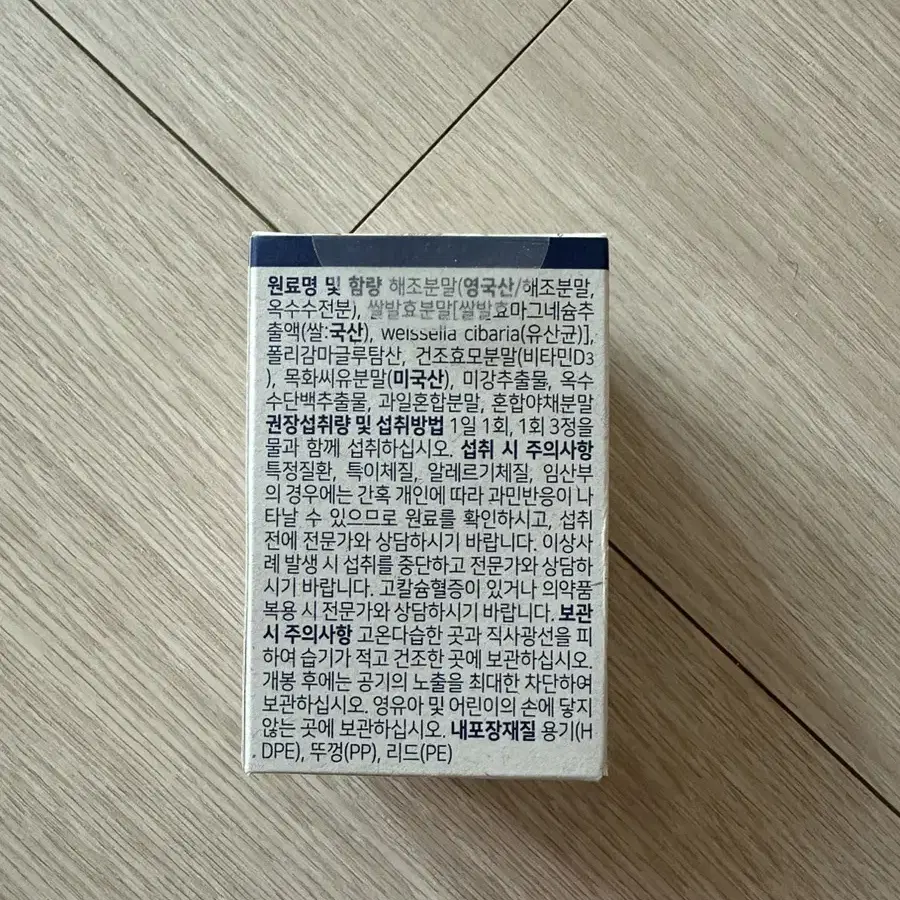 원료명 및 함량 해조분말(영국산/해조분말,
옥수수전분), 쌀발효분말[쌀발효마그네슘추
출액(쌀:국산), weissella cibaria(유산균)],
폴리감마글루탐산, 건조효모분말(비타민D3
), 목화씨유분말(미국산), 미강추출물, 옥수
수단백추출물, 과일혼합분말, 혼합야채분말
권장섭취량 및 섭취방법 1일 1회, 1회 3정을
물과 함께 섭취하십시오. 섭취 시 주의사항
특정질환, 특이체질, 알레르기체질, 임산부
의 경우에는 간혹 개인에 따라 과민반응이 나
타날 수 있으므로 원료를 확인하시고, 섭취
전에 전문가와 상담하시기 바랍니다. 이상사
례 발생 시 섭취를 중단하고 전문가와 상담하
시기 바랍니다. 고칼슘혈증이 있거나 의약품
복용 시 전문가와 상담하시기 바랍니다. 보관
시 주의사항 고온다습한 곳과 직사광선을 피
하여 습기가 적고 건조한 곳에 보관하십시오.
개봉 후에는 공기의 노출을 최대한 차단하여
보관하십시오. 영유아 및 어린이의 손에 닿지
않는 곳에 보관하십시오. 내포장재질 용기(H
DPE), 뚜껑(PP), 리드(PE)